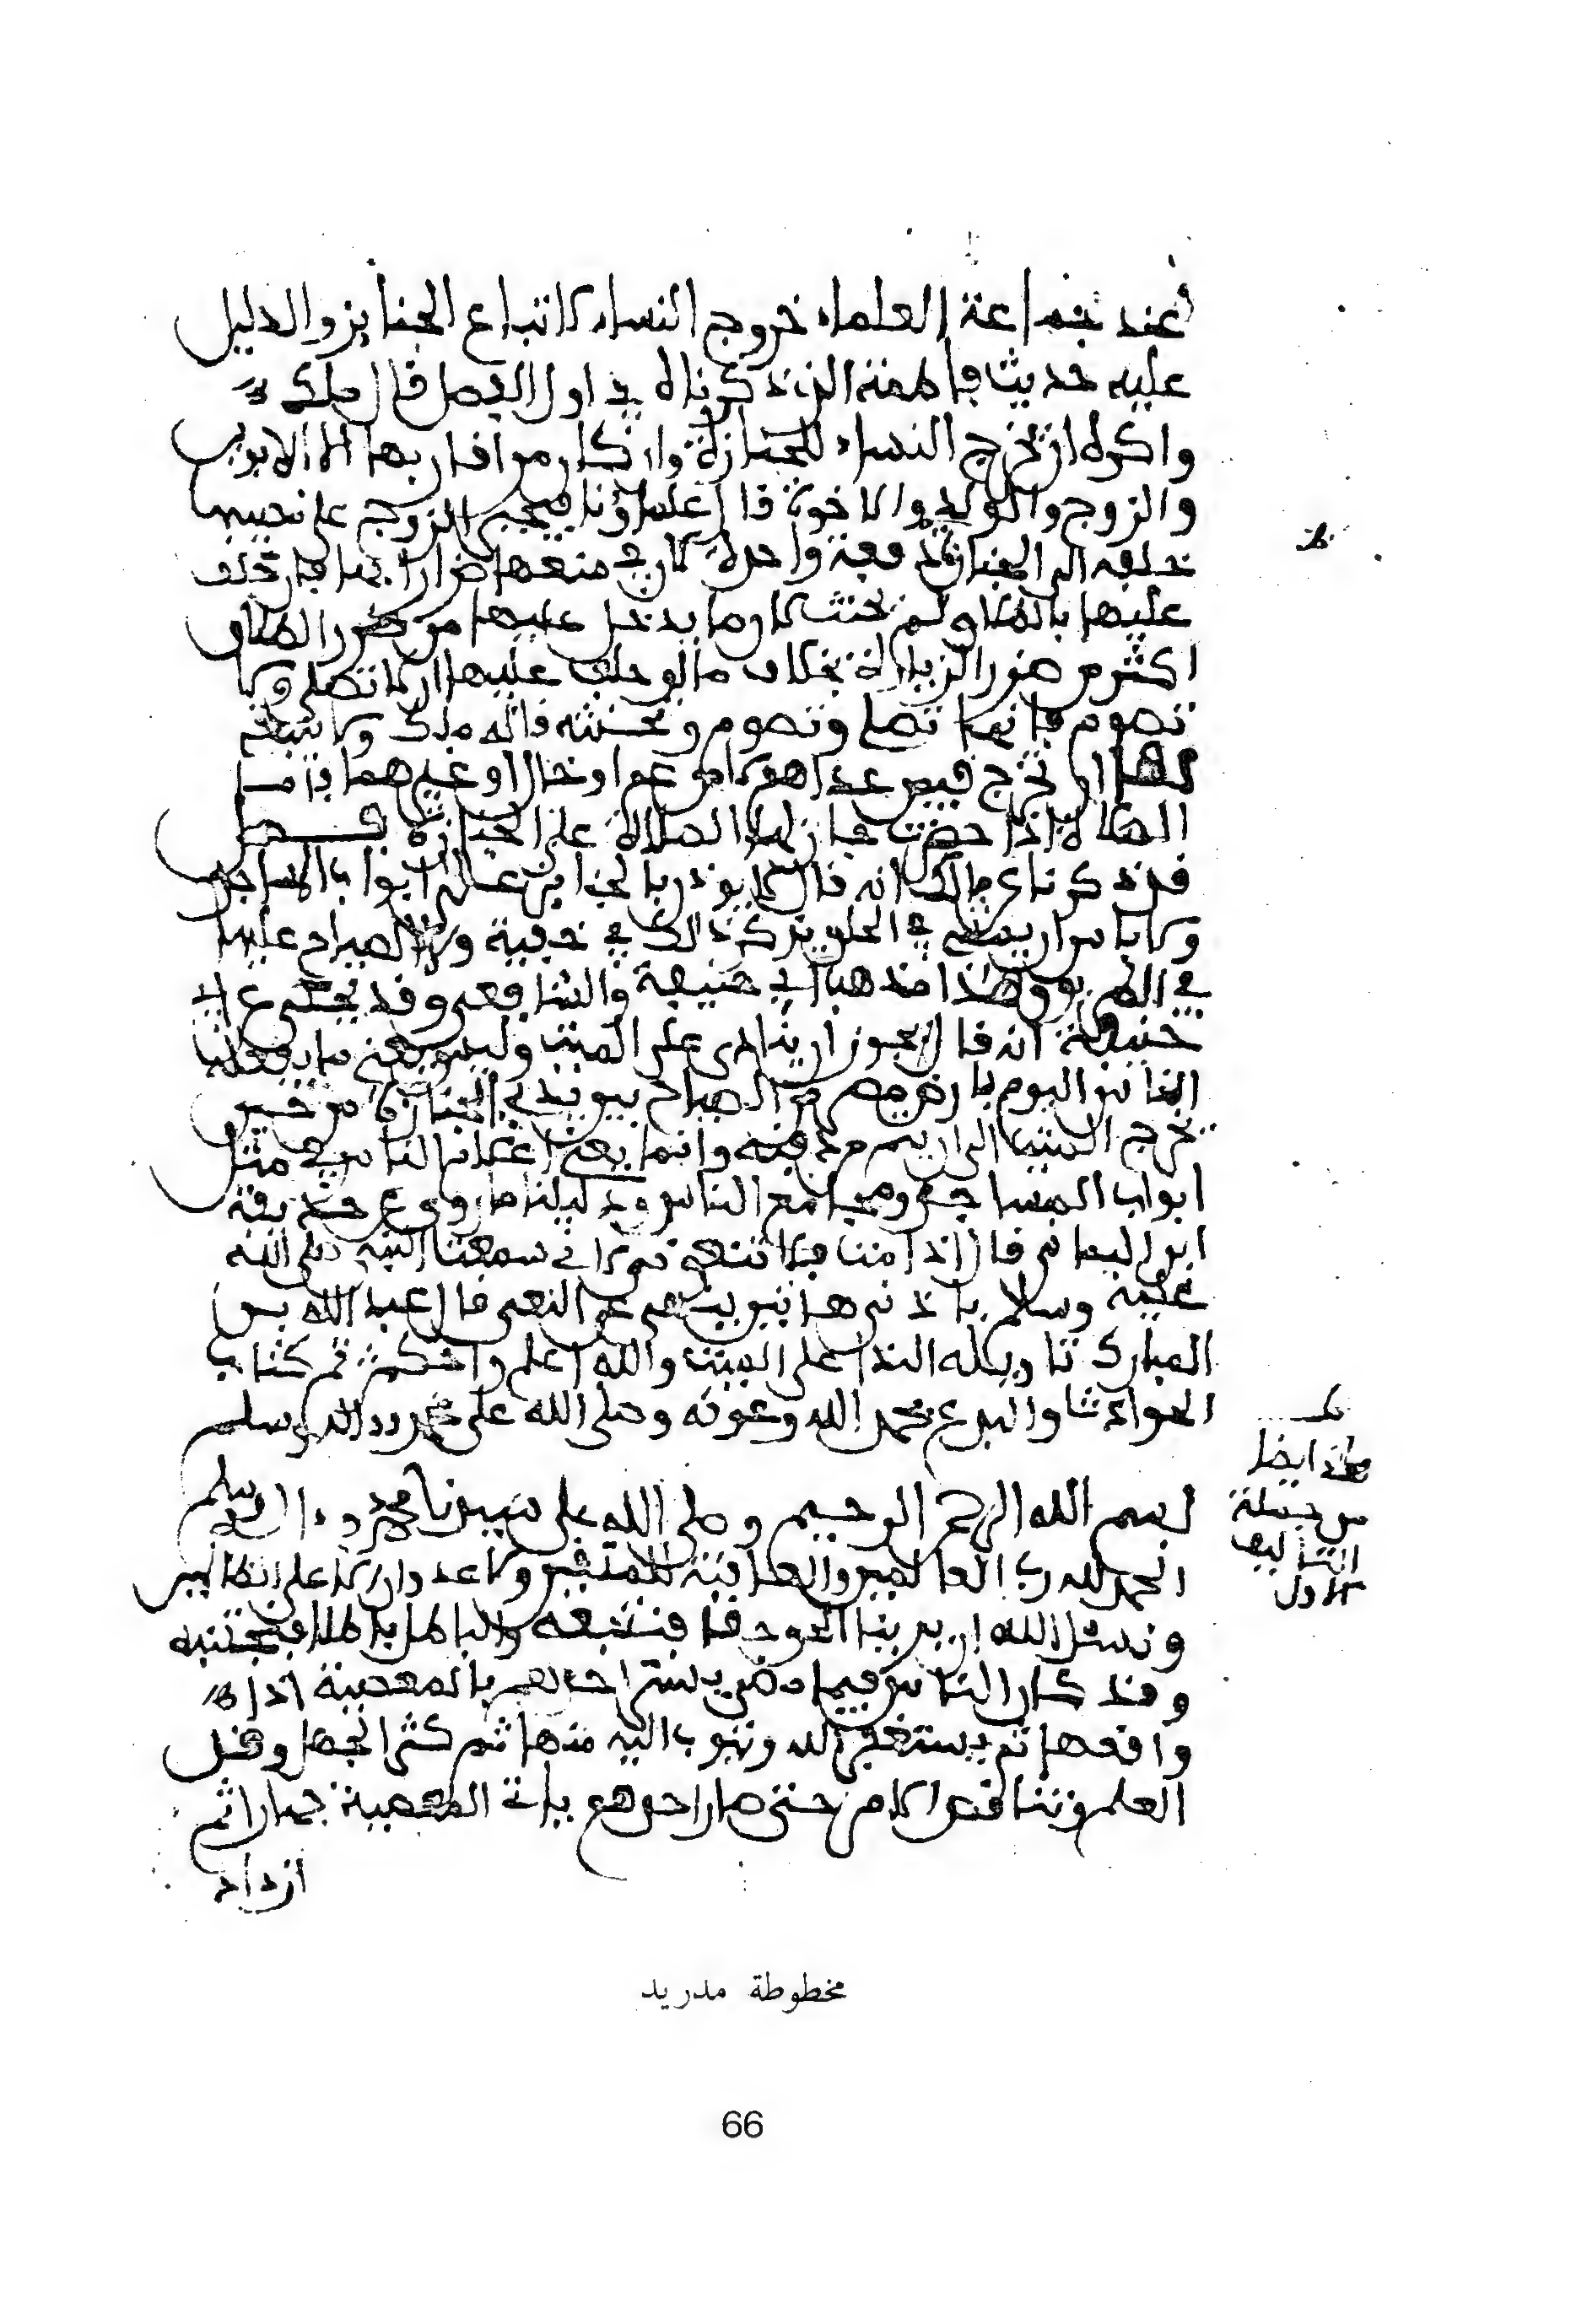 عند جماعة العلماء خروج النساء لاتباع الجنايز والدليل
عليه حديث فاطمة الذي ذكرناه في اول الفصل قال ملك
واكره ان تخرج النساء للجنازة وان كان من اقاربها الا الابوين
والزوج والولد والاخوة قال علماؤنا
خلفه الى الجنازة دفعة واحدة لان في منعها ضرارا بها فان حلف
عليها بالطلاق لم يحنث لان ما يدخل عليها من ضرر الطلاق
اكثر من ضرر الزيارة بخلاف ما لو حلف عليها ان لا تصلي ولا
تصوم فانها تصلي وتصوم وتحنثه قاله ملك ولا ينبغي
لها ان تخرج فيمن عدا هولا من عم او خال او غيرهما فاما
الصلاة اذا حضرت جاز لها الصلاة على الجنازة
قد ذكرنا عن مالك انه قال لا يوذن بالجنايز على ابواب المساجد
ولا باس ان يمشي في الحلق يذكر ذلك في خفية ولا الصياح عليها
في الطريق وهذا مذهب ابي حنيفة والشافعي وقد يحكى عن ابي
حنيفة انه قال يجوز ان ينادى على الميت وليس يعني ما يفعله
الناس اليوم بارض مصر من الصياح بين يدي الجنازة من حين
تخرج الميت الى ان يتم مدفنه وانما يعني اعلام الناس في مثل
ابواب المساجد ومجامع الناس ودليلنا ما روي عن حذيفة
ابن اليمان قال اذا مت فلا تنعوني فاني سمعت النبي صلى الله
عليه وسلم باذني هاتين ينهى عن النعي قال عبد الله بن
المبارك تاويله الندا على الميت والله اعلم واحكم تم كتاب
الحوادث والبدع بحمد الله وعونه وصلى الله على محمد واله وسلم
بسم الله الرحمن الرحيم وصلى الله على سيدنا محمد و اله وسلم
الحمد لله رب العالمين والعاقبة للمتقين ولا عدوان الا على الظالمين
ونسئل الله ان يرينا الحق حقا فنتبعه والباطل باطلا فنجتنبه
وقد كان الناس فيما مضى يستتر احدهم بالمعصية اذا
واقعها ثم يستغفر الله ويتوب اليه منها ثم كثر الجهل وقل
العلم وتناقص الامر حتى صار احدهم ياتي المعصية جهارا ثم
ازداد
هذا ايضا
من جملة
التاليف
الاول
مخطوطة مدريد
66